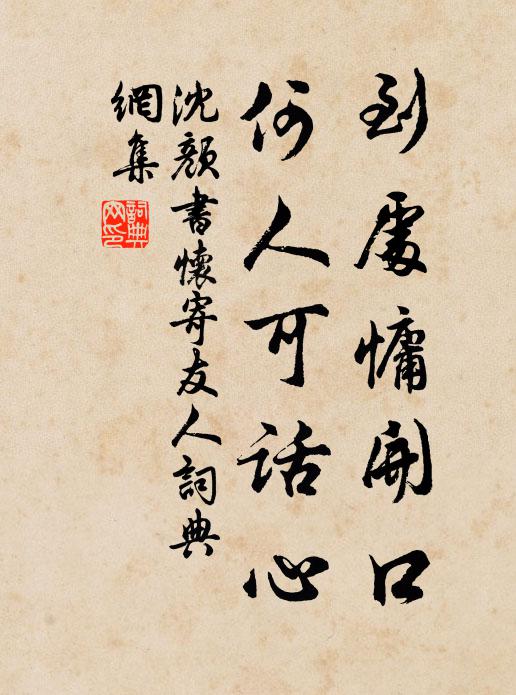 到處慵開口
何人可話心
沈顏書懷寄友人詞典
網集
詞典
网印